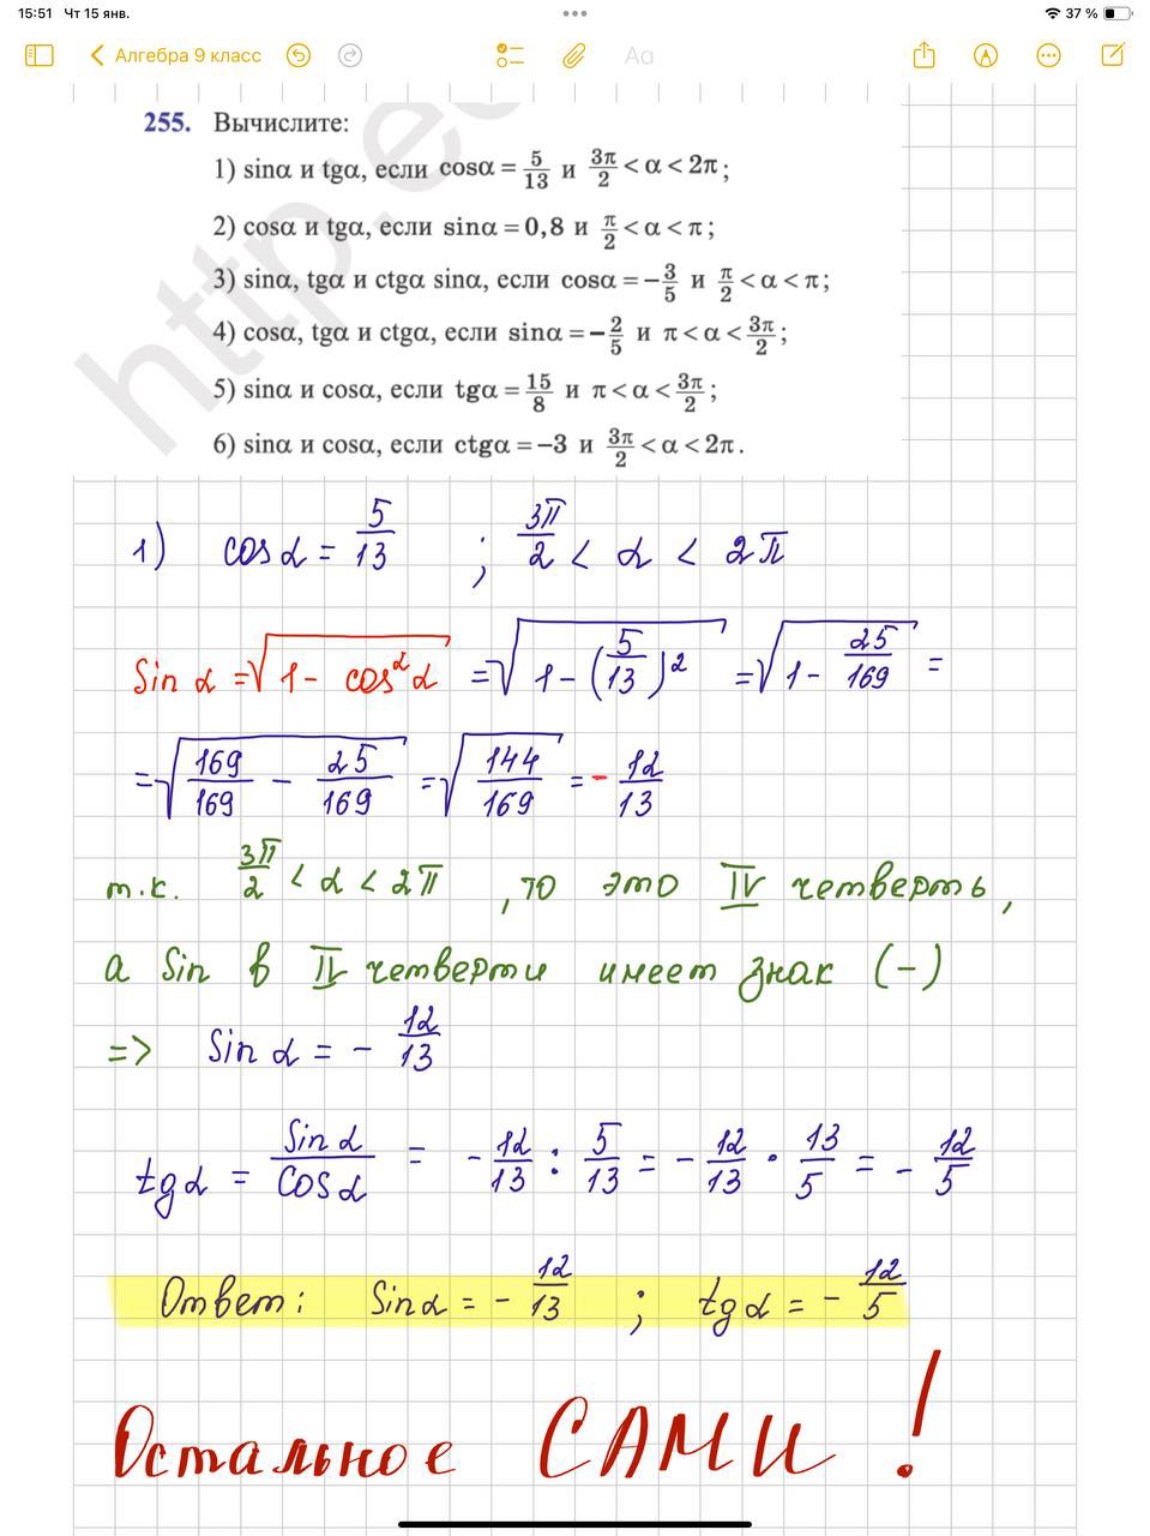 15:51 Чт 15 янв. 37 %
Алгебра 9 класс Aa
255. Вычислите:
1) sinα и tgα, если cosα = 5/13 и 3π/2 < α < 2π;
2) cosα и tgα, если sinα = 0,8 и π/2 < α < π;
3) sinα, tgα и ctgα sinα, если cosα = −3/5 и π/2 < α < π;
4) cosα, tgα и ctgα, если sinα = −2/5 и π < α < 3π/2;
5) sinα и cosα, если tgα = 15/8 и π < α < 3π/2;
6) sinα и cosα, если ctgα = −3 и 3π/2 < α < 2π.
http.e
1) cos α = 5/13 ; 3π/2 < α < 2π
Sin α = √(1 - cos²α) = √(1 - (5/13)²) = √(1 - 25/169) =
= √(169/169 - 25/169) = √(144/169) = - 12/13
т.к. 3π/2 < α < 2π , то это IV четверть,
а Sin в IV четверти имеет знак (-)
=> Sin α = - 12/13
tg α = Sin α/Cos α = - 12/13 : 5/13 = - 12/13 · 13/5 = - 12/5
Ответ: Sin α = - 12/13 ; tg α = - 12/5
Остальное САМИ !